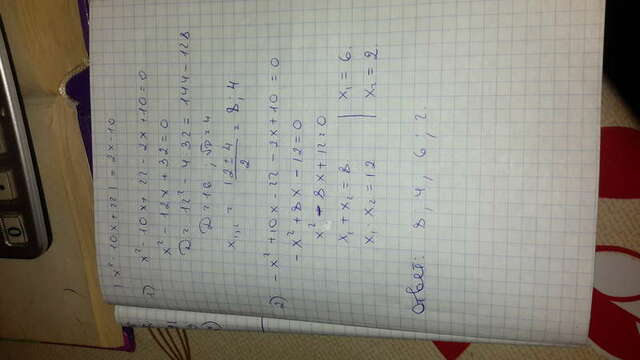 | x² - 10x + 22 | = 2x - 10
1) x² - 10x + 22 - 2x + 10 = 0
x² - 12x + 32 = 0
D = 12² - 4·32 = 144 - 128
D = 16, √D = 4
x₁,₂ = (12 ± 4)/2 = 8; 4
2) -x² + 10x - 22 - 2x + 10 = 0
-x² + 8x - 12 = 0
x² - 8x + 12 = 0
x₁ + x₂ = 8 | x₁ = 6
x₁ x₂ = 12 | x₂ = 2
Ответ: 8, 4, 6; 2.